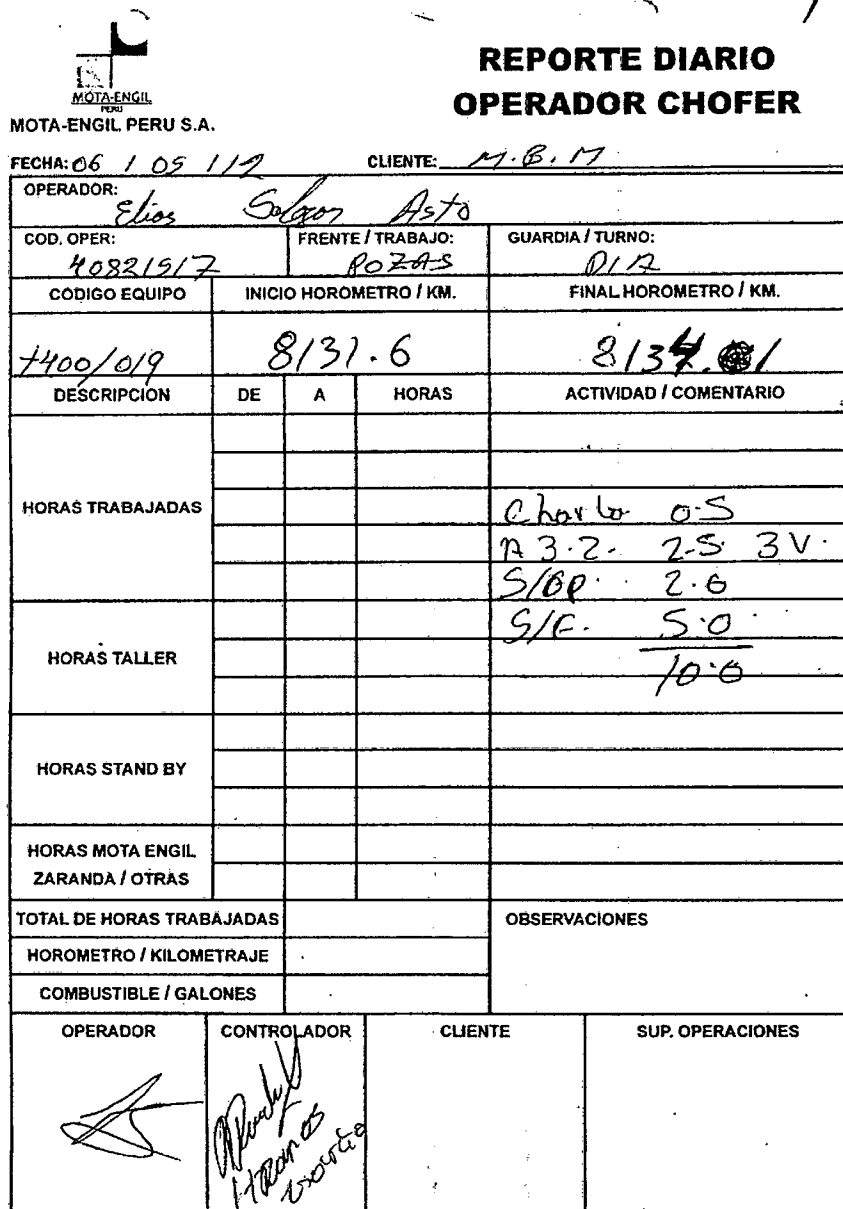 MOTA-ENGIL
PERU
MOTA-ENGIL PERU S.A.
REPORTE DIARIO
OPERADOR CHOFER
FECHA: 06 / 05 / 12 CLIENTE: M.B.M
OPERADOR:
Elias Salazar Asto
COD. OPER: FRENTE / TRABAJO: GUARDIA / TURNO:
40821517 POZAS DIA
CODIGO EQUIPO INICIO HOROMETRO / KM. FINAL HOROMETRO / KM.
+400/019 8131.6 8134.1
DESCRIPCION DE A HORAS ACTIVIDAD / COMENTARIO
HORAS TRABAJADAS
Charla 0.5
A 3.2. 2.5 3V.
S/OP. 2.0
S/F. 5.0
10.0
HORAS TALLER
HORAS STAND BY
HORAS MOTA ENGIL
ZARANDA / OTRAS
TOTAL DE HORAS TRABAJADAS OBSERVACIONES
HOROMETRO / KILOMETRAJE
COMBUSTIBLE / GALONES
OPERADOR CONTROLADOR CLIENTE SUP. OPERACIONES